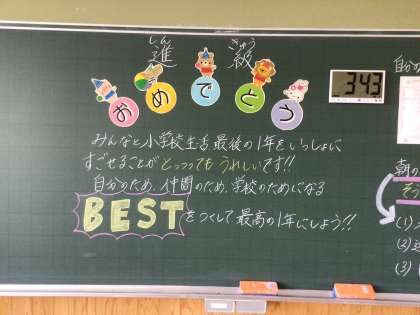 しん きゅう
進 級
おめでとう
343
自分の
みんなと小学校生活最後の1年をいっしょに
すごせることがとっっってもうれしいです!!
自分のため、仲間のため、学校のためになる
BESTをつくして、最高の1年にしよう!!
朝の
(1)
(2)
(3)